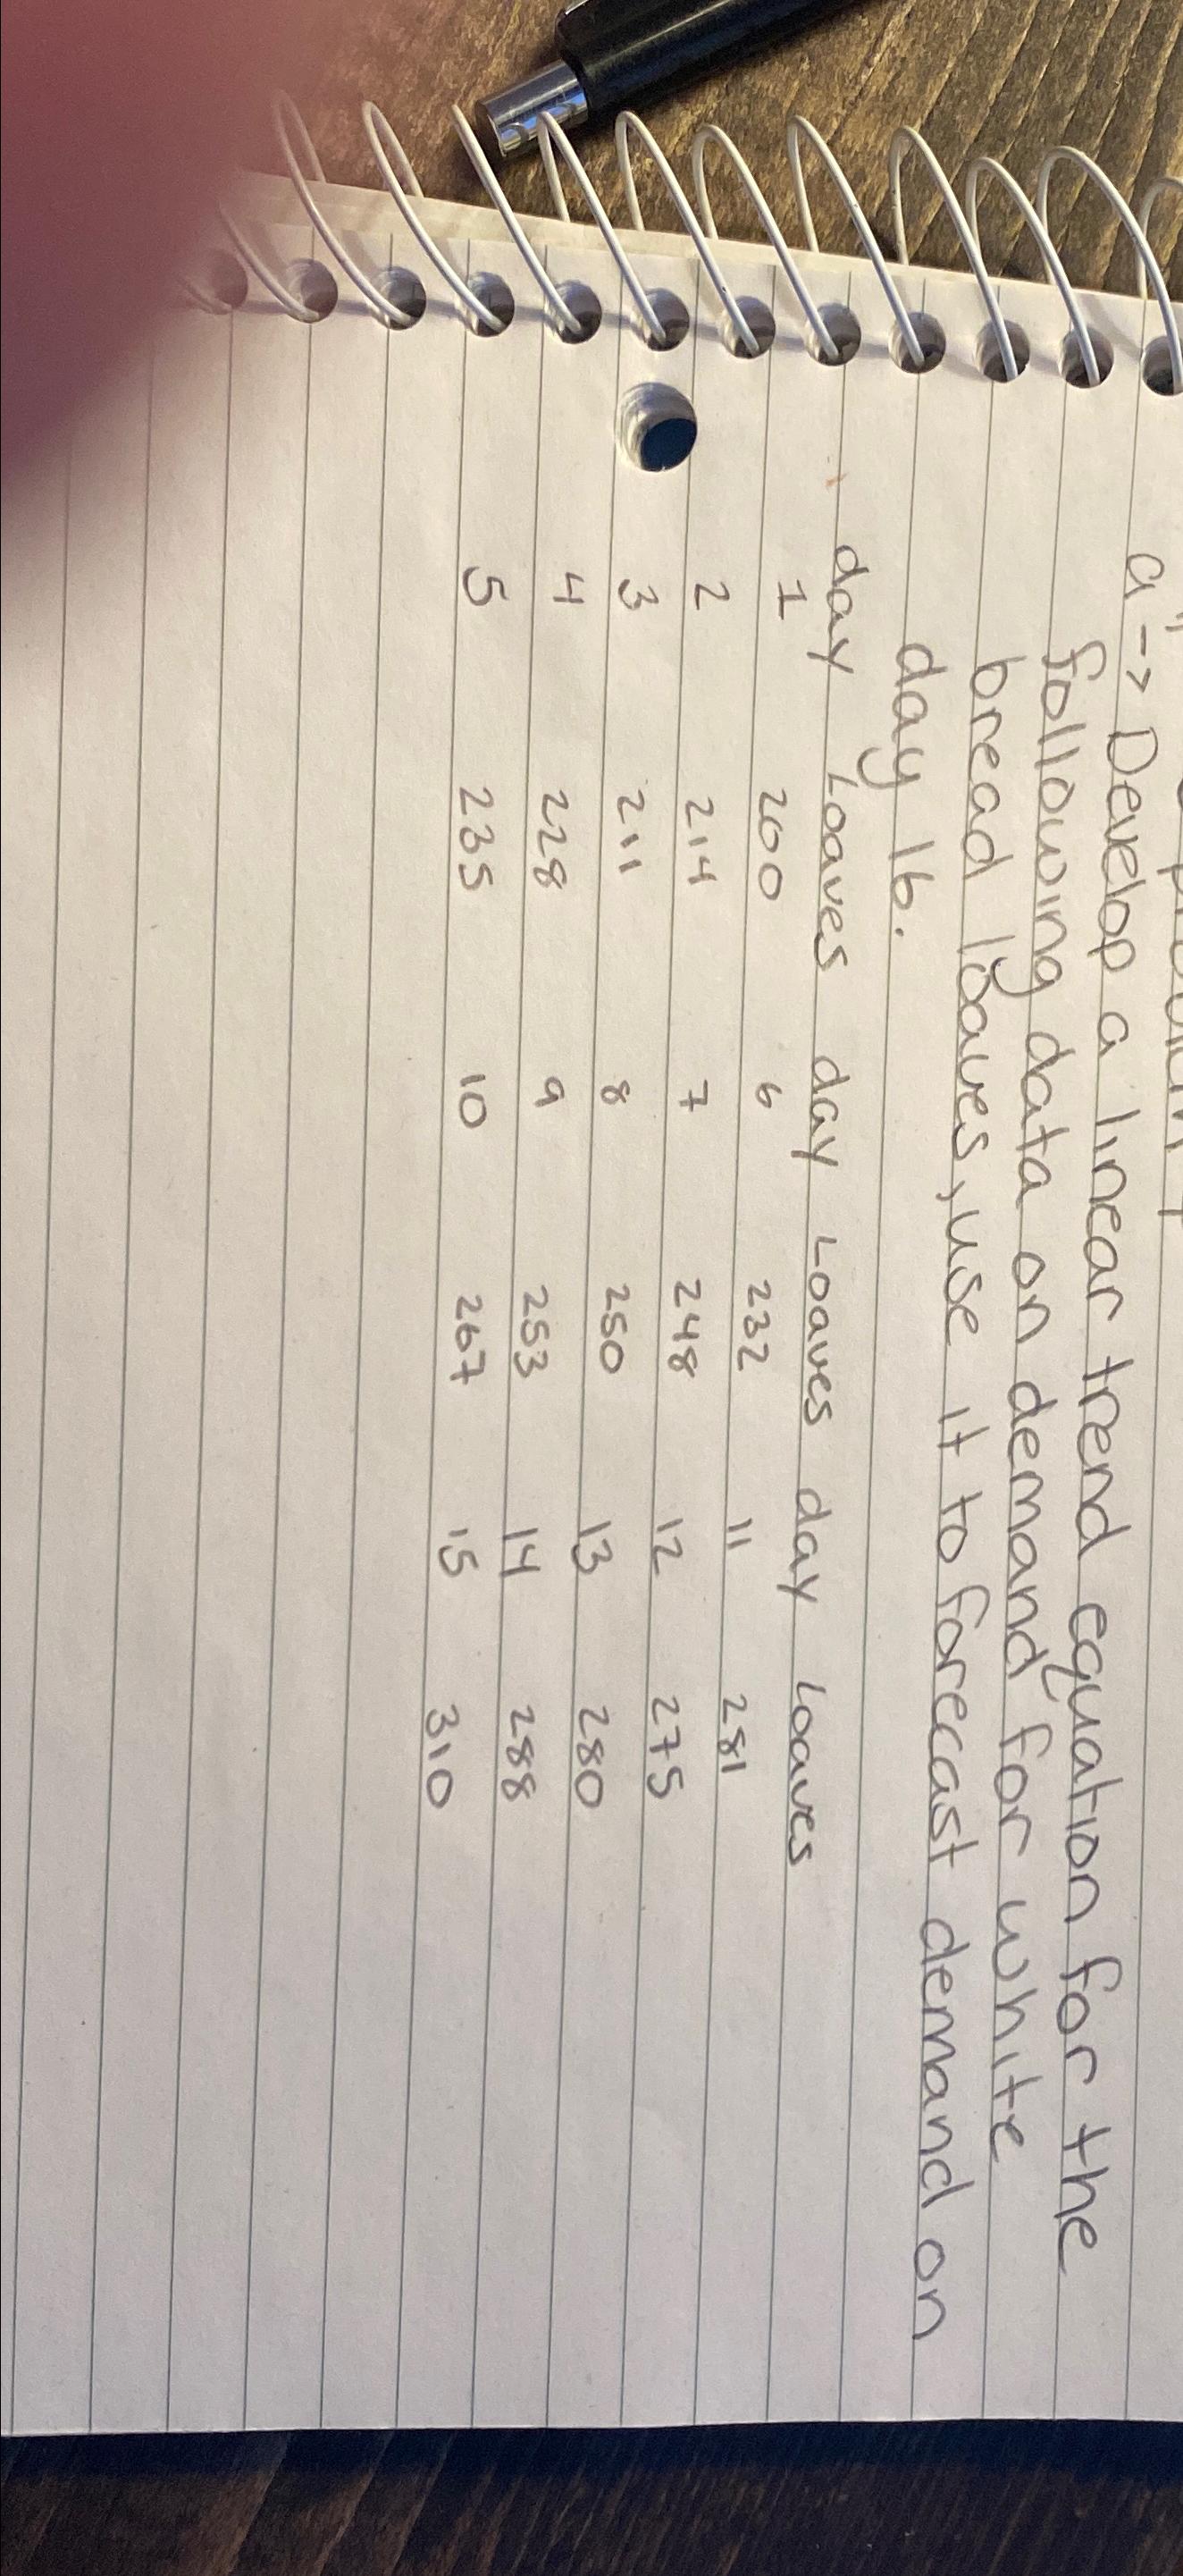 a -> Develop a linear trend equation for the
following data on demand for white
bread loaves, use it to forecast demand on
day 16.
day Loaves day Loaves day Loaves
1 200 6 232 11 281
2 214 7 248 12 275
3 211 8 250 13 280
4 228 9 253 14 288
5 235 10 267 15 310